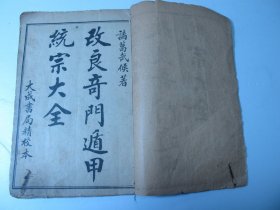 諸葛武侯著
改良奇門遁甲
統宗大全
大成書局精校本